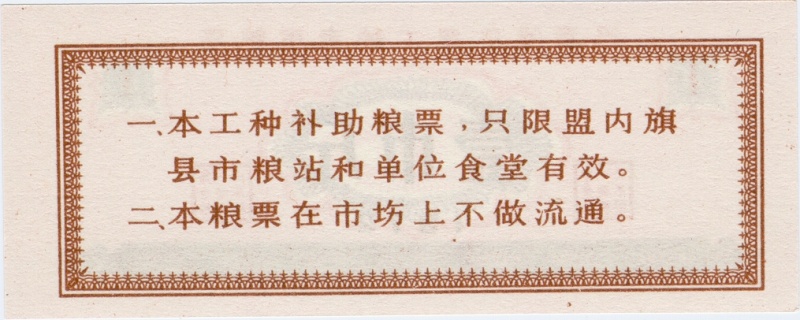 一、本工种补助粮票，只限盟内旗
县市粮站和单位食堂有效。
二、本粮票在市坊上不做流通。